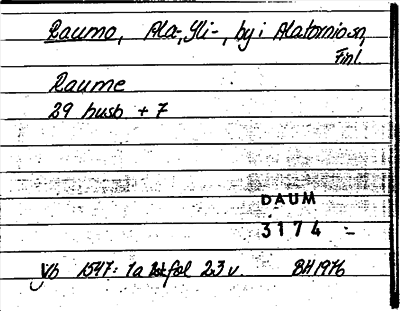 Raumo, Ala-, Yli-, by i Alatornio sn,
Finl.
Raume
29 husb + 7
DAUM
3174 -
Vb 1547: 1a 23 v. BH 1976